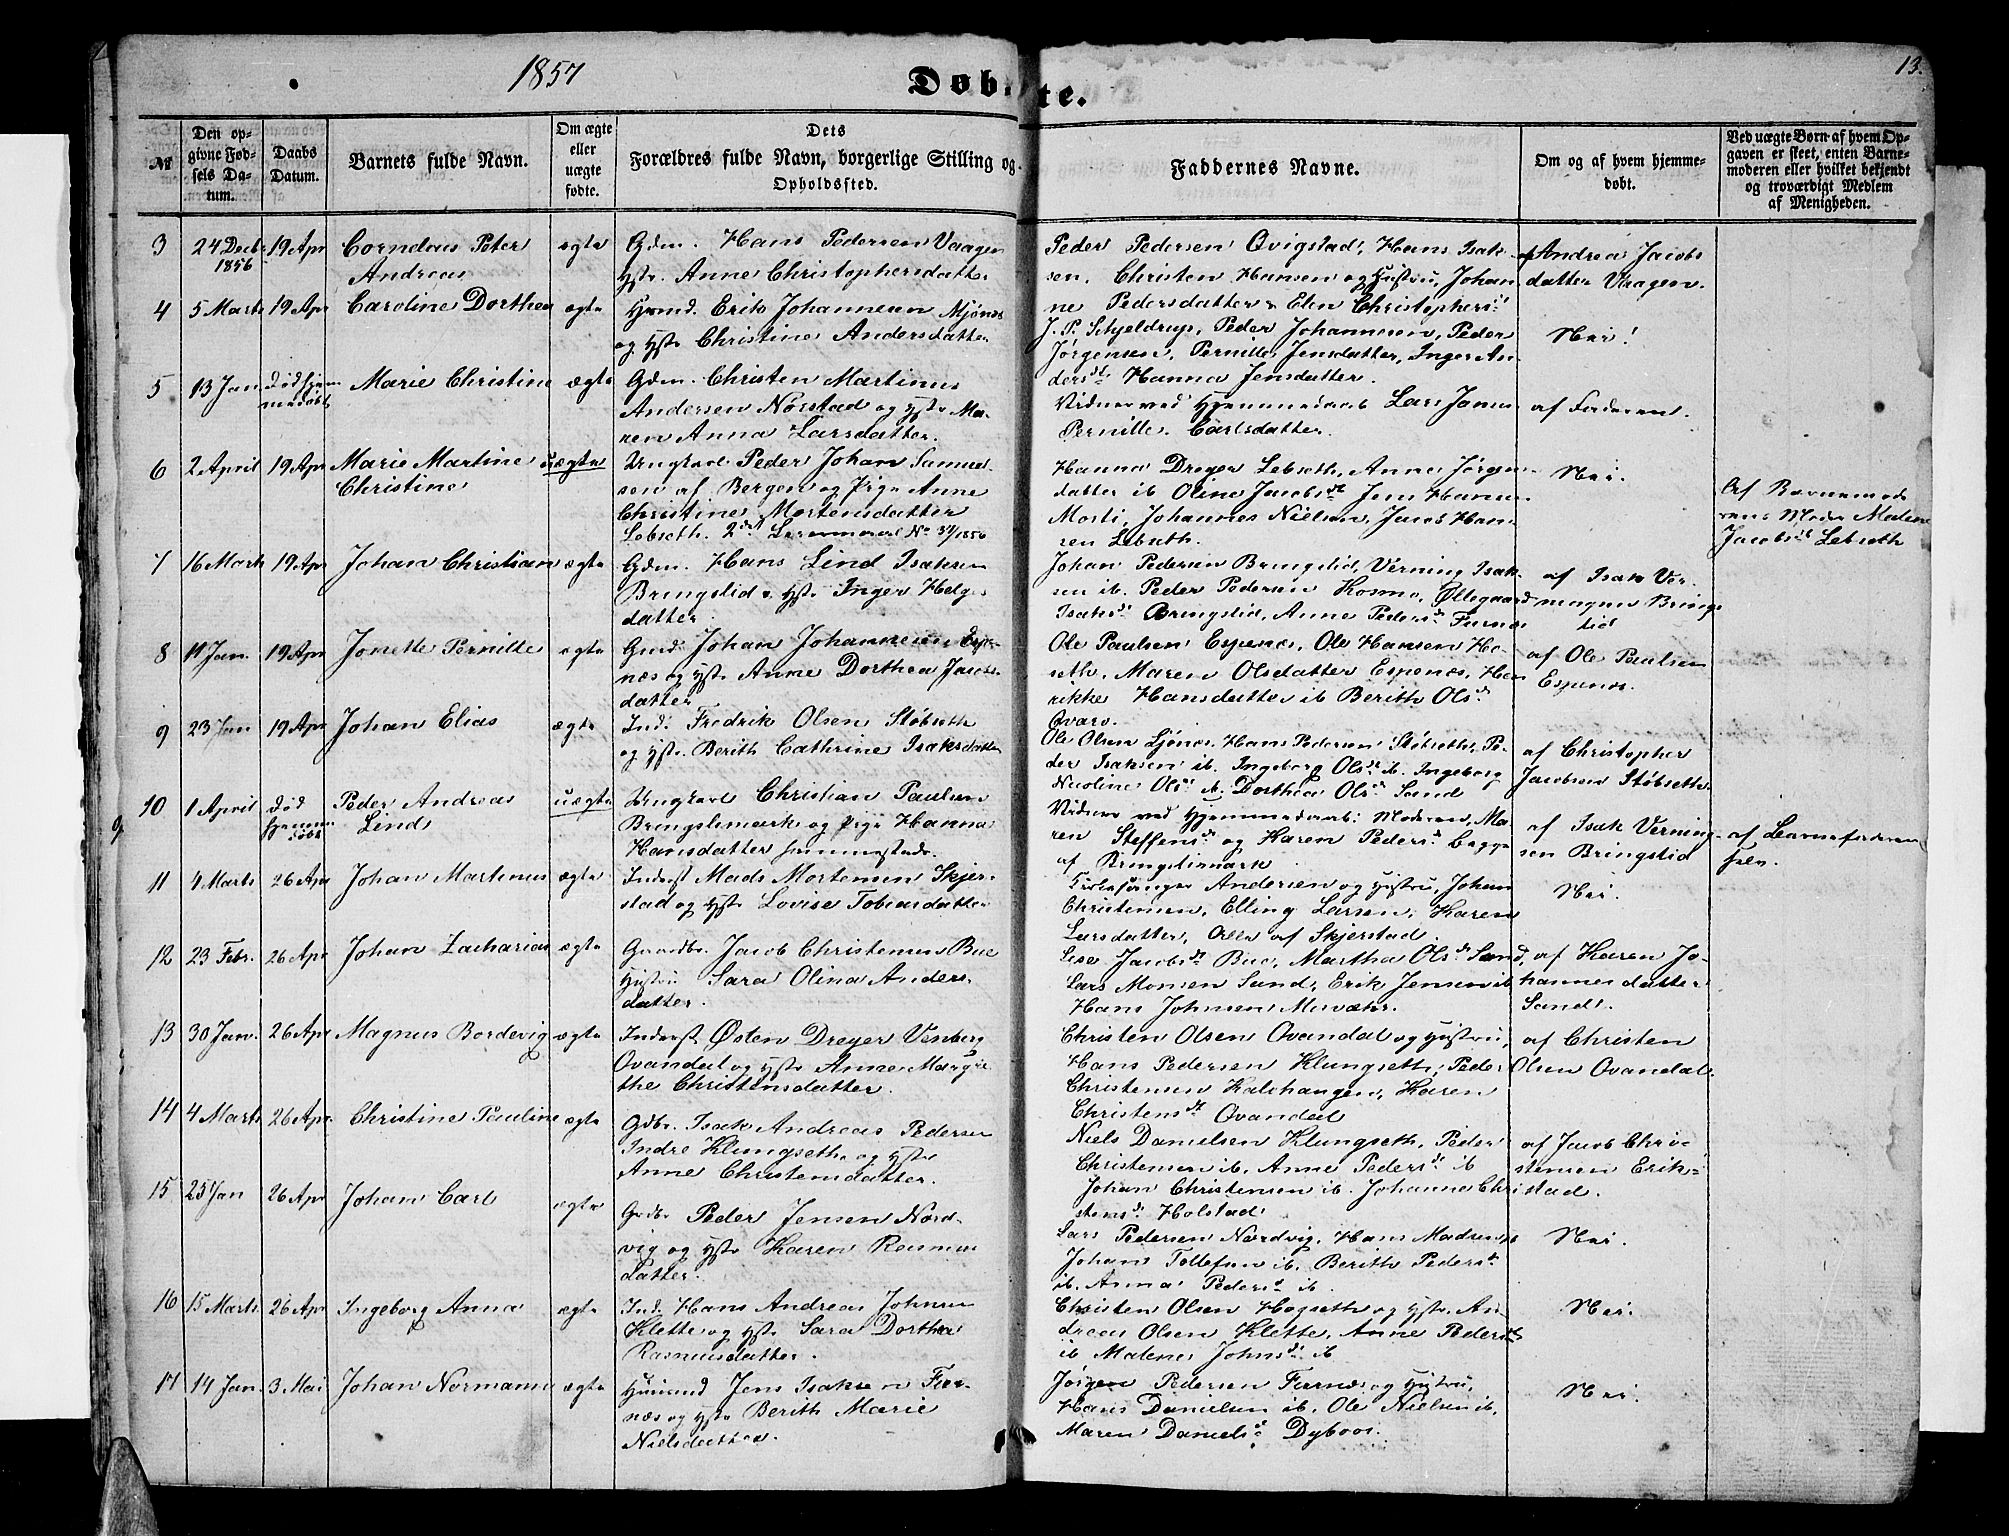 1857
Døbte.
13.
№
Den op-
givne Fød-
sels Da-
tum.
Daabs
Datum.
Barnets fulde Navn.
Om ægte
eller
uægte
fødte.
Dets
Forældres fulde Navn, borgerlige Stilling og
Opholdssted.
Faddernes Navne.
Om og af hvem hjemme-
døbt.
Ved uægte Børn af hvem Op-
gaven er skeet, enten Barne-
moderen eller hvilket bekjendt
og troværdigt Medlem
af Menigheden.
3
24 Decbr
1856
19 Apr
Cornelius Peter
Andreas
ægte
Gdm. Hans Pedersen Vaagen
Hstr. Anne Christophersdatter
Peder Pedersen Qvigstad, Hans Isak-
sen, Christen Hansen og Hustru, Johan
ne Pedersdatter Elen Christophersdt
af Andrea Jacobs
datter Vaagen.
4
5 Marts
19 Apr
Caroline Dorthea
ægte
Hmd. Erik Johannesen Mjønes
og Hstr Christine Andersdatter
J. P. Schjeldrup, Peder Johannesen, Peder
Jørgensen, Pernille Jensdatter, Inger An-
dersdt Hanna Jensdatter.
Nei!
5
13 Jan
død hjem
medøbt
Marie Christine
ægte
Gdm. Christen Martinus
Andersen Norstad og Hstr Ma-
ren Anna Larsdatter.
Vidner ved Hjemmedaab Lars Jons
Pernille Carlsdatter.
af Faderen.
6
2 April
19 Apr
Marie Martine
Christine
uægte
Ungkarl Peder Johan Samuel-
sen af Bergen og Pige Anne
Christine Mortensdatter
Løbseth. 2det Leiermaal No 34/1856
Hanna Dreyer Løbseth, Anne Jørgens-
datter ib Oline Jacobsdt Jens Hansen
Morti, Johannes Nielsen, Jacob Han-
sen Løbseth.
Nei.
Af Barnemod
rens Moder Malene
Jacobsdt Løbseth
7
16 Marts
19 Apr
Johan Christian
ægte
Gdm. Hans Lind Isaksen
Bringslid & Hstr Inger Helges
datter
Johan Pedersen Bringslid, Verning Isak-
sen ib. Peder Pedersen Kosmo, Øllegaard
Isaksdt Bringslid, Anne Pedersdt Furnæs
af Isak Ver-
ningsen Brings
lid
8
11 Jan.
19 Apr
Jonette Pernille
ægte
Gmd. Johan Johannesen Espe-
næs og Hstr Anne Dorthea Jacobs-
datter
Ole Paulsen Espenæs, Ole Hansen Hø-
seth, Maren Olsdatter Espenæs, Hen
rikke Hansdatter ib Berith Olsdt
Qvarv.
af Ole Paulsen
Espenæs.
9
23 Jan
19 Apr
Johan Elias
ægte
Ind. Fredrik Olsen Støbseth
og Hstr Berith Cathrine Isaksdatter
Ole Olsen Ljønes, Hans Pedersen Støbseth, Pe-
der Isaksen ib. Ingeborg Olsdt ib. Ingeborg
Nicoline Olsdt ib. Dorthea Olsdt Sand
af Christopher
Jacobsen Støbseth
10
1 April
død
hjemme
døbt
Peder Andreas
Lind
uægte
Ungkarl Christian Paulsen
Bringslimark og Pige Hanna
Hansdatter sammesteds.
Vidner ved Hjemmedaab: Moderen, Ma
ren Steffensdt og Karen Pedersdt begge
af Bringslimark
af Isak Verning-
sen Bringslid
af Barnefaderen
selv.
11
4 Marts
26 Apr
Johan Martinus
ægte
Inderst Mads Mortensen Skjer-
stad og Hstr Lovise Tobiasdatter
Kirkesanger Andersen og Hustru, Johan
Christensen, Elling Larsen, Karen
Larsdatter, Alle af Skjerstad.
Nei.
12
23 Febr.
26 Apr
Johan Zacharias
ægte
Gaardbr. Jacob Christensen Bue
Hustru Sara Olina Anders-
datter.
Lise Jacobsdt Bue, Martha Olsdt Sand,
Lars Monsen Sand, Erik Jensen ib
Hans Johnsen Misvær.
af Karen Jo-
hannesdatter
Sand.
13
30 Jan.
26 Apr
Magnus Bordevig
ægte
Inderst Østen Dreyer Venberg
Qvandal og Hstr Anne Margre
the Christensdatter.
Christen Olsen Qvandal og Hustru,
Hans Pedersen Klungseth, Peder
Christensen Kalvhangen, Karen
Christensdt Qvandal
af Christen
Olsen Qvandal.
14
4 Marts
26 Apr.
Christine Pauline
ægte
Gdbr. Isak Andreas Pedersen
Indre Klungseth og Hstr
Anne Christensdatter.
Niels Danielsen Klungseth, Peder
Christensen ib. Anne Pedersdt ib
Johan Christensen ib. Johanna Chri
stensdt Holstad
af Jacob Chri-
stensen Erik-
stad.
15
25 Jan
26 Apr
Johan Carl
ægte
Gdbr Peder Jensen Nord-
vig og Hstr Karen Rasmus
datter.
Lars Pedersen Nordvig, Hans Madsen ib
Johans Tollefsen ib. Berith Pedersdt
ib. Anna Pedersdt ib
Nei.
16
15 Marts
26 Apr
Ingeborg Anna
ægte
Ind. Hans Andreas Johnsen
Klette og Hstr Sara Dorthea
Rasmusdatter.
Christen Olsen Høgseth og Hstr. An-
dreas Olsen Klette, Anne Pedersdt
ib Malene Johnsdt ib
Nei.
17
14 Jan.
3 Mai
Johan Normann
ægte
Husmand Jens Isaksen Fur-
næs og Hstr Berith Marie
Nielsdatter.
Jørgen Pedersen Furnæs og Hustru,
Hans Danielsen ib. Ole Nielsen ib.
Maren Danielsdt Dybvos.
Nei.